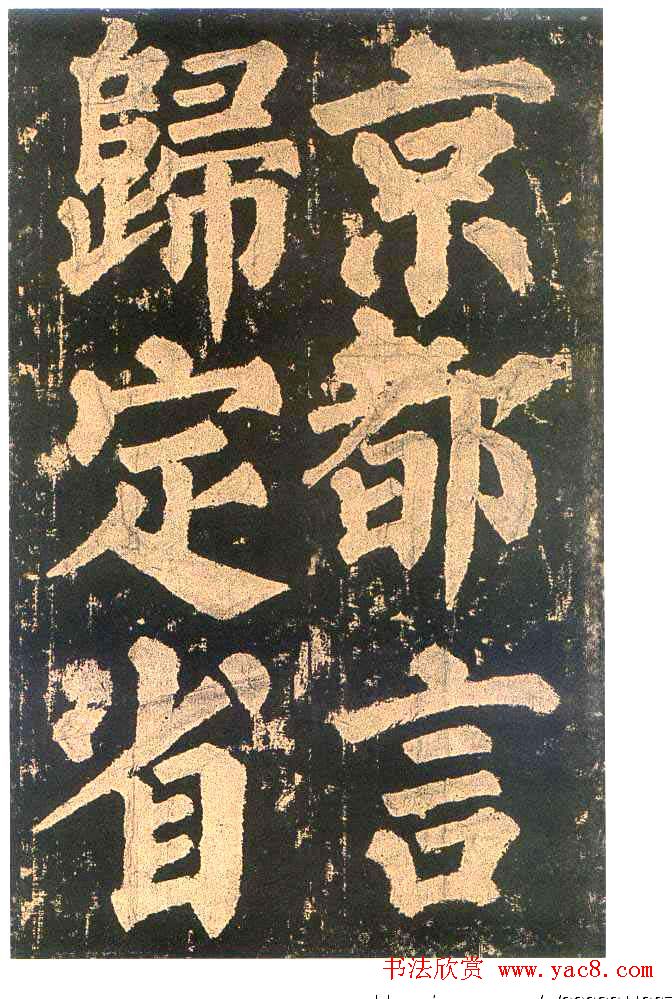 京都言
歸定省
书法欣赏 www.yac8.com